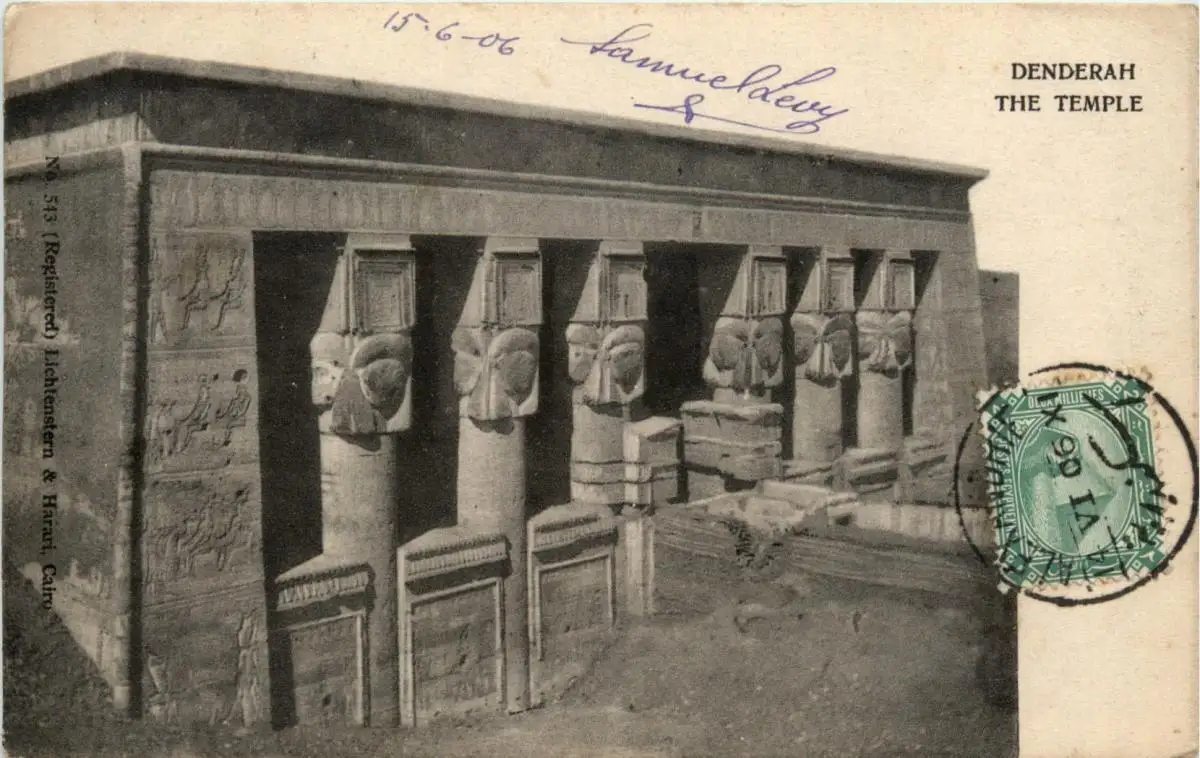 15-6-06 Samuel Levy
DENDERAH
THE TEMPLE
No. 543 (Registered) Lichtenstern & Harari, Cairo
DEUX MILLIEMES
VI 06